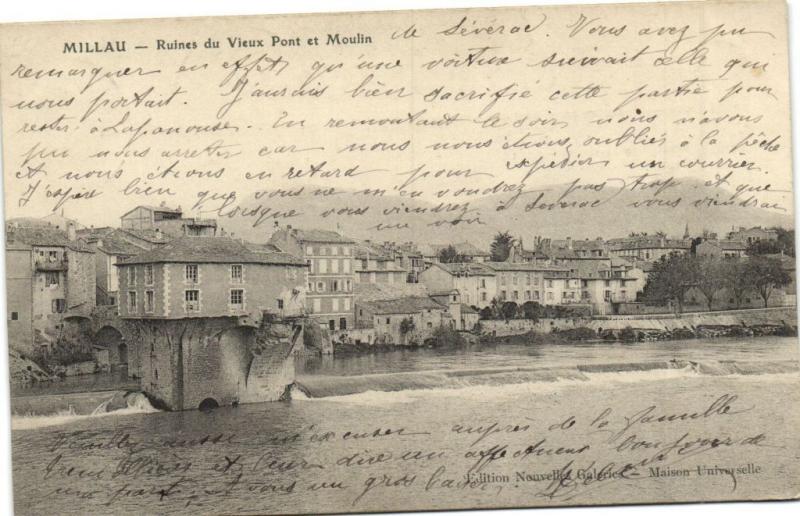 MILLAU — Ruines du Vieux Pont et Moulin
de Séverac. Vous avez pu
remarquer en effet qu'une voiture suivait celle qui
nous portait. J'aurais bien sacrifié cette partie pour
rester à Lapanouse. En remontant le soir nous n'avons
pu nous arrêter car nous nous étions oubliés à la pêche
et nous étions en retard pour expédier un courrier.
J'espère bien que vous ne m'en voudrez pas trop et que
lorsque vous viendrez à Séverac vous viendrez
me voir
Veuillez aussi m'excuser auprès de la famille
et leur dire un affectueux bonjour de
ma part. A vous un gros baiser.
Edition Nouvelles Galeries — Maison Universelle